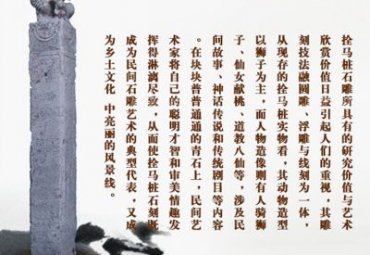 拴马桩石雕所具有的研究价值与艺术
欣赏价值日益引起人们的重视，其雕
刻技法融圆雕、浮雕与线刻为一体，
从现存的拴马桩实物看，其动物造型
以狮子为主，而人物造像则有人骑狮
子、仙女献桃、道教八仙等，涉及民
间故事、神话传说和传统剧目等内容
。在块块普普通通的青石上，民间艺
术家将自己的聪明才智和审美情趣发
挥得淋漓尽致，从而使拴马桩石刻既
成为民间石雕艺术的典型代表，又成
为乡土文化 中亮丽的风景线。